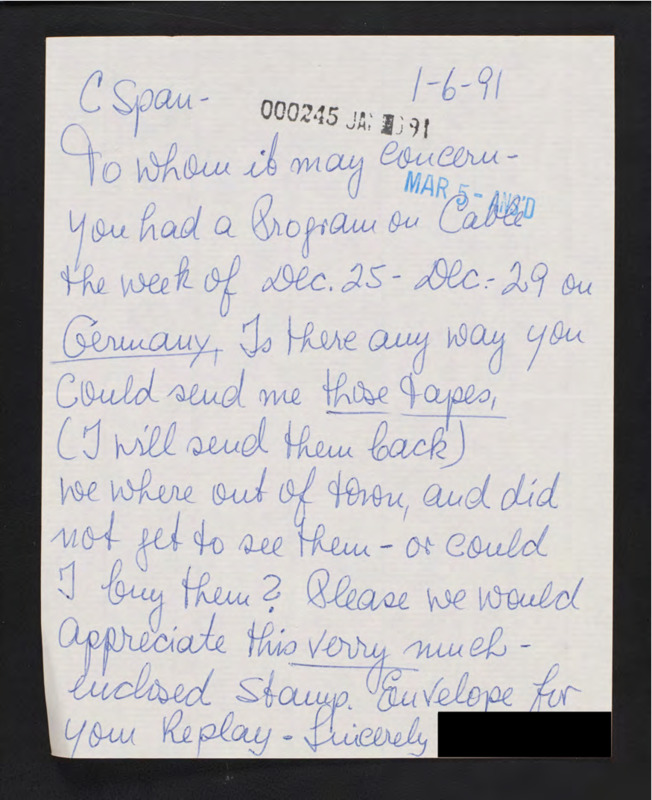 C Span - 1-6-91
000245 JAN 91
To whom it may concern -
MAR 5 - ANS'D
you had a Program on Cable
the week of Dec. 25 - Dec. - 29 on
Germany, Is there any way you
could send me those tapes,
(I will send them back)
we where out of town, and did
not get to see them - or could
I buy them? Please we would
appreciate this verry much -
enclosed Stamp. Envelope for
your Replay - Sincerely